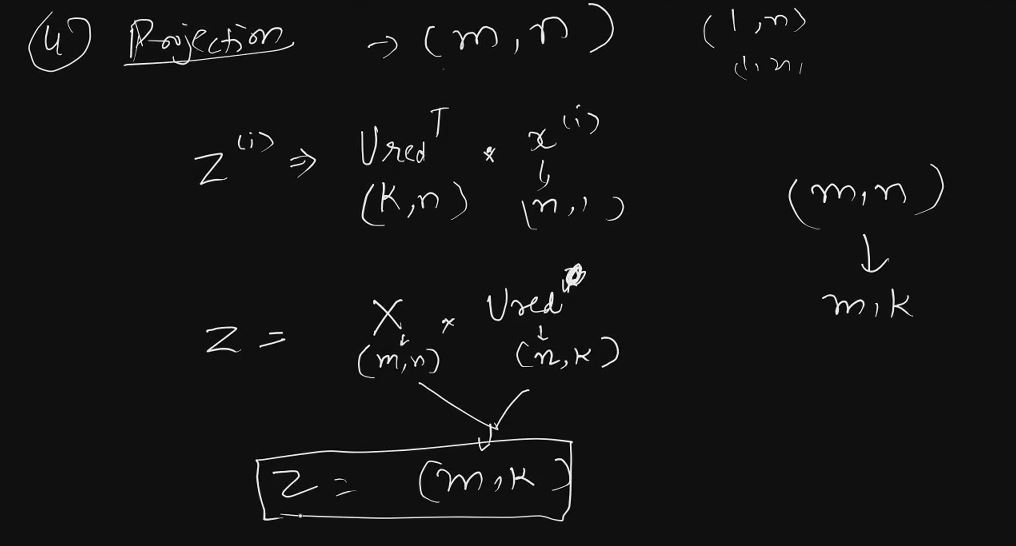 4) Projection → (m,n) (1,n)
z^(i) ⇒ Ured^T * x^(i)
(k,n) (n,1)
(m,n)
↓
m,k
Z = X * Ured
(m,n) (n,k)
Z = (m,k)